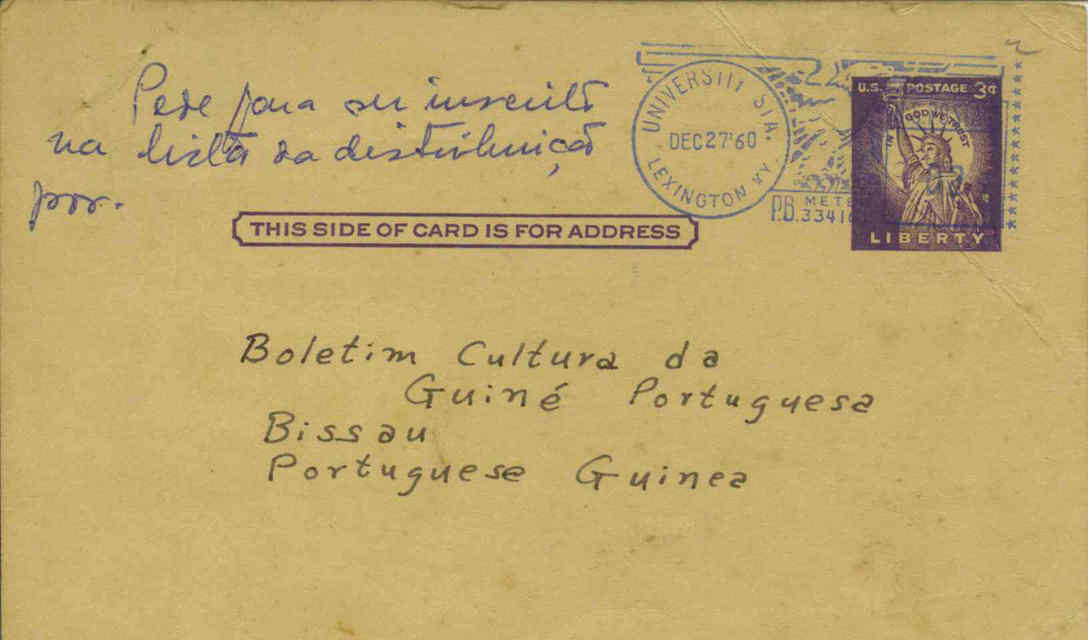 Pede para ser inscrito
na lista da distribuição
por.
UNIVERSITY STA.
DEC27'60
LEXINGTON KY.
P.B. METER
33416
U.S. POSTAGE 3¢
IN GOD WE TRUST
LIBERTY
THIS SIDE OF CARD IS FOR ADDRESS
Boletim Cultura da
Guiné Portuguesa
Bissau
Portuguese Guinea